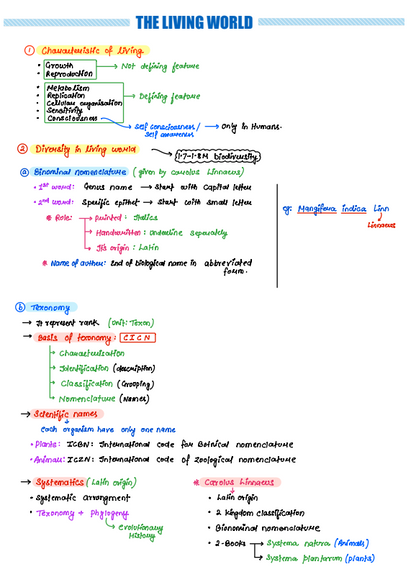 THE LIVING WORLD
① Characteristic of living
• Growth
• Reproduction → Not defining feature
• Metabolism
• Replication
• Cellular organisation → Defining feature
• Sensitivity
• Consciousness → Self consciousness/ Self awareness → Only in Humans.
② Diversity in living world → 1.7-1.8M biodiversity
ⓐ Binominal nomenclature (given by carolus Linnaeus)
• 1st word: Genus name → Start with Capital letter
• 2nd word: Specific epithet → Start with small letter
* Role: → printed: Italics
→ Handwritten: Underline separately
→ It's origin: Latin
* Name of author: End of biological name in abbreviated form.
eg: Mangifera indica Linn
Linnaeus
ⓑ Taxonomy
→ It represent rank (Unit: Taxon)
→ Basis of taxonomy: CICN
→ Characterisation
→ Identification (description)
→ Classification (Grouping)
→ Nomenclature (Names)
→ Scientific names
each organism have only one name
• Plants: ICBN: International code for Botnical nomenclature
• Animals: ICZN: International code of Zoological nomenclature
→ Systematics (Latin origin)
• Systematic arrangment
• Taxonomy + phylogeny
→ Evolutionary History
* Carolus Linnaeus
• Latin origin
• 2 kingdom classification
• Bionominal nomenclature
• 2-Books → Systema natura (Animals)
→ Systema plantarum (plants)